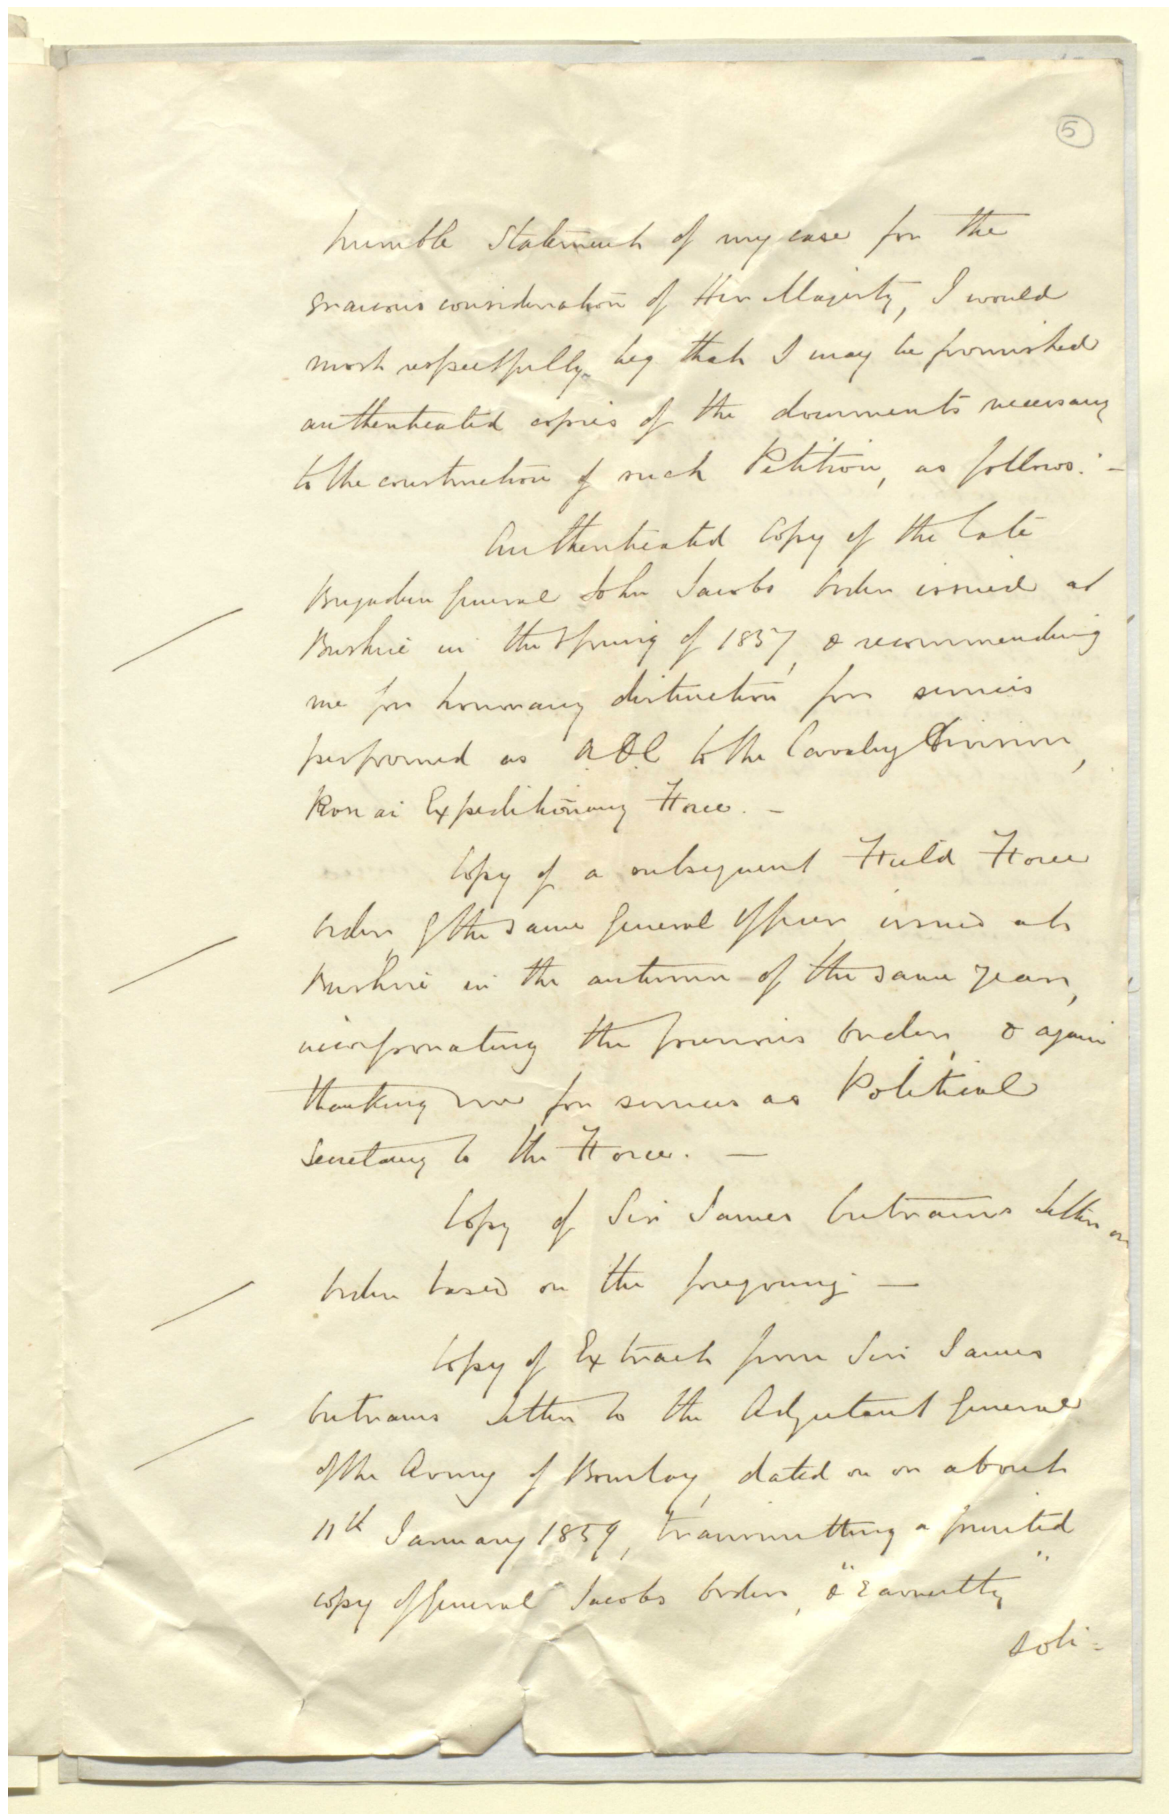 5
humble Statement of my case for the
gracious consideration of Her Majesty, I would
most respectfully beg that I may be furnished
authenticated copies of the documents necessary
to the construction of such Petition, as follows: -
Authenticated Copy of the late
Brigadier General John Jacobs Order issued at
Bushire in the Spring of 1857, & recommending
me for honorary distinction for services
performed as ADC to the Cavalry Division,
Expeditionary Force. -
Copy of a subsequent Field Force
Order of the same General Officer issued at
Bushire in the autumn of the same year,
incorporating the previous Order, & again
thanking me for services as Political
Secretary to the Force. -
Copy of Sir James Outrams Letter or
Order based on the foregoing -
Copy of Extract from Sir James
Outrams Letter to the Adjutant General
of the Army of Bombay, dated on or about
11th January 1859, transmitting a printed
copy of General Jacobs Orders, & "earnestly"
soli-